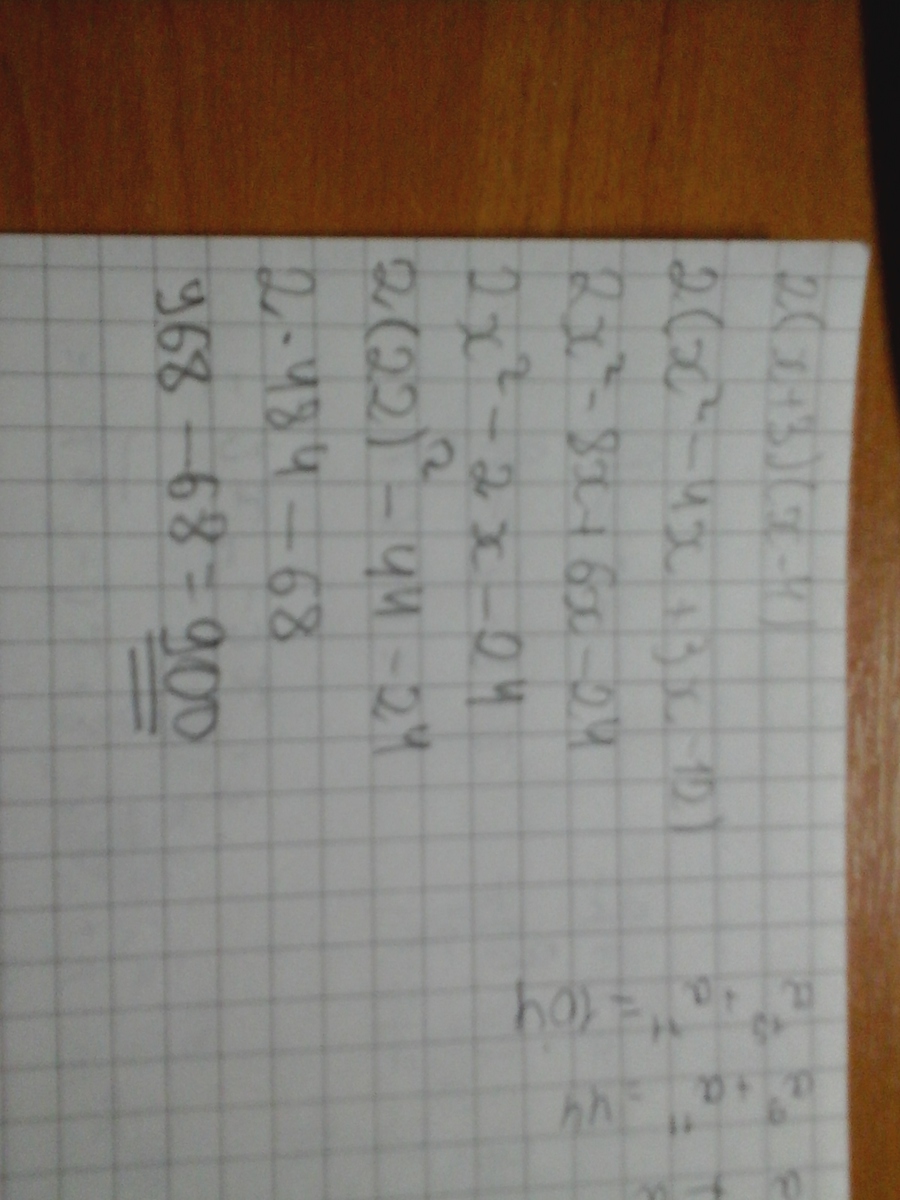 2(x+3)(x-4)
2(x²-4x+3x-12)
2x²-8x+6x-24
2x²-2x-24
2(22)²-44-24
2·484-68
968-68=900
=104
=44